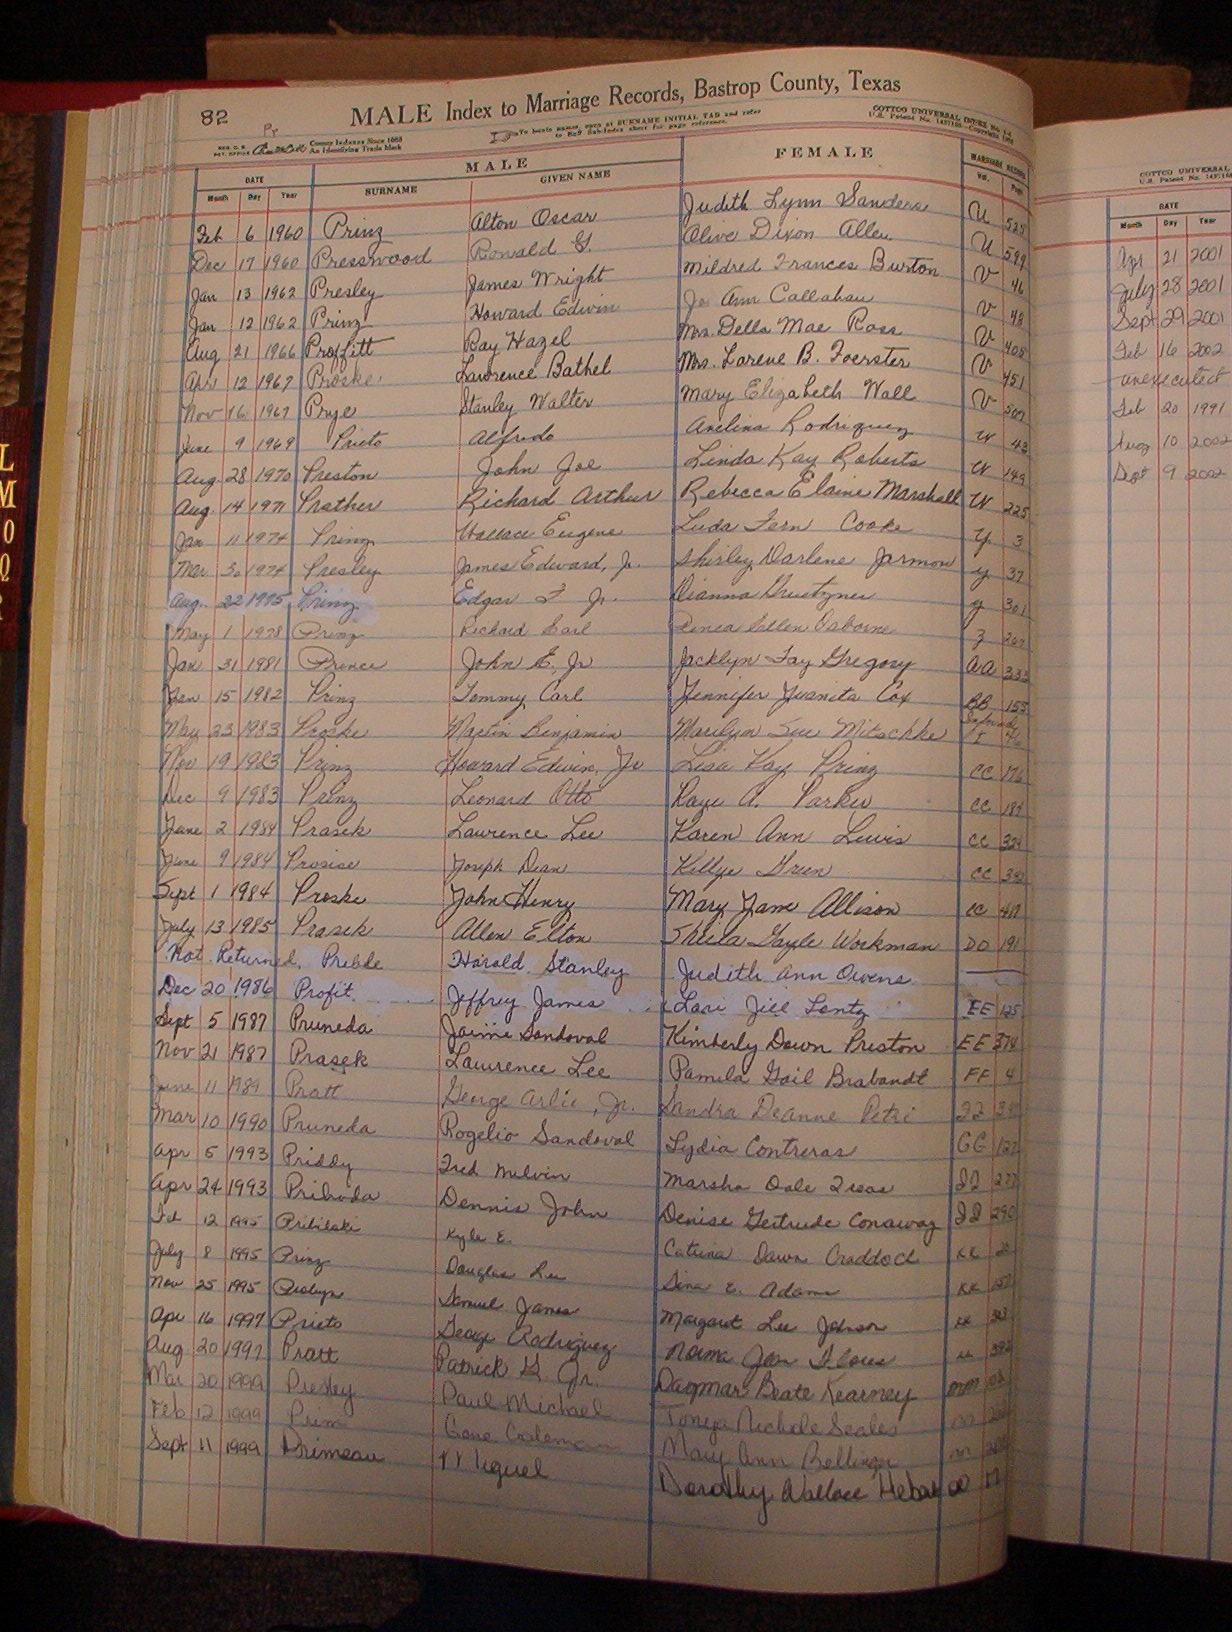 82 MALE Index to Marriage Records, Bastrop County, Texas
Pr
To locate names, open at SURNAME INITIAL TAB and refer
COTTCO UNIVERSAL INDEX
County Indexes Since 1888
An Identifying Trade Mark
MALE FEMALE
DATE
Month Day Year SURNAME GIVEN NAME Vol. Page
Feb 6 1960 Prinz Alton Oscar Judith Lynn Sanders U 528
Dec 17 1960 Presswood Ronald G. Olive Dixon Allen U 599
Jan 13 1962 Presley James Wright Mildred Frances Burton V 46
Jan 12 1962 Prinz Howard Edwin Jo Ann Callahan V 48
Aug 21 1966 Proffitt Ray Hazel Mrs. Della Mae Ross V 408
Apr 12 1967 Proske Lawrence Bathel Mrs. Larene B. Foerster V 451
Nov 16 1967 Prye Stanley Walter Mary Elizabeth Wall V 507
June 9 1969 Prieto Alfredo Avelina Rodriquez W 43
Aug. 28 1970 Preston John Joe Linda Kay Roberts W 149
Aug. 14 1971 Prather Richard Arthur Rebecca Elaine Marshall W 225
Jan 11 1974 Prinz Wallace Eugene Luda Fern Cooke Y 3
Mar 30 1974 Presley James Edward, Jr. Shirley Darlene Jarmon Y 37
Aug. 22 1975 Prinz Edgar F Jr. Dianna Gruetzner Y 301
May 1 1978 Prinz Richard Earl Renea Ellen Osborne Z 267
Jan 31 1981 Prince John E. Jr Jacklyn Fay Gregory AA 333
Jan 15 1982 Prinz Tommy Carl Jennifer Juanita Cox BB 155
May 23 1983 Proske Martin Benjamin Marilyn Sue Mitschke
Nov 19 1983 Prinz Howard Edwin, Jr Lisa Kay Prinz CC 176
Dec 9 1983 Prinz Leonard Otto Raye A. Parker CC 184
June 2 1984 Prasek Lawrence Lee Karen Ann Lewis CC 324
June 9 1984 Prosise Joseph Dean Kellye Green CC
Sept 1 1984 Proske John Henry Mary Jane Allison CC 417
July 13 1985 Prasek Allen Elton Sheila Gayle Workman DD 191
Not Returned. Preble Harold Stanley Judith Ann Owens
Dec 20 1986 Profit Jeffrey James Lori Jill Lentz EE 125
Sept 5 1987 Pruneda Jaime Sandoval Kimberly Dawn Preston EE 374
Nov 21 1987 Prasek Lawrence Lee Pamela Gail Brabandt FF 4
June 11 1989 Pratt George Arlie, Jr. Sandra DeAnne Petri
Mar 10 1990 Pruneda Rogelio Sandoval Lydia Contreras GG 122
Apr 5 1993 Priddy Fred Melvin Marsha Dale II 277
Apr 24 1993 Prihoda Dennis John Denise Gertrude Conaway II 290
12 1995 Pribilski Kyle E. Catrina Dawn Craddock KK
July 8 1995 Prinz Douglas Lee Tina E. Adams KK 157
Nov 25 1995 Samuel James Margaret Lee Johnson KK
Apr 16 1997 Prieto George Rodriguez Norma Jean Flores
Aug 20 1997 Pratt Patrick G. Jr. Dagmar Beate Kearney MM
Mar 20 1999 Presley Paul Michael Tonya Nichole Scales
Feb 12 1999 Prim Gene Coleman Mary Ann Bellinger
Sept 11 1999 Primeau Miguel Dorothy Wallace Hebar OO 17
COTTCO UNIVERSAL
DATE
Month Day Year
Apr 21 2001
July 28 2001
Sept 29 2001
Feb 16 2002
unexecuted
Feb 20 1991
Aug 10 2002
Sept 9 2002